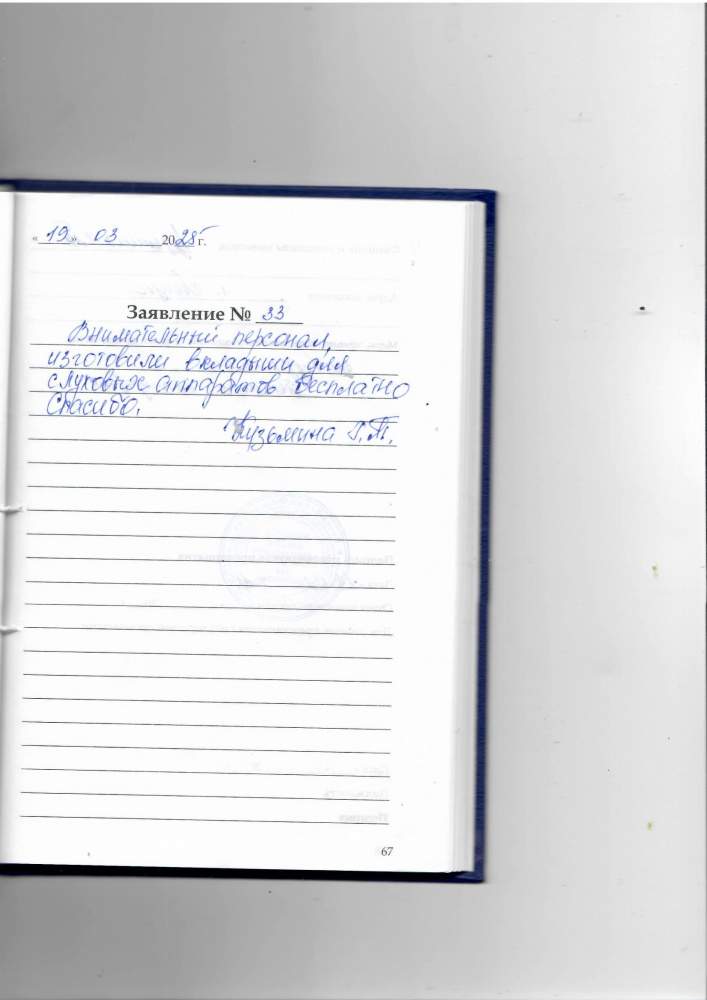 «19» 03 2025 г.
Заявление № 33
Внимательный персонал,
изготовили вкладыши для
слуховых аппаратов бесплатно
Спасибо.
Кузьмина Г.Т.
67